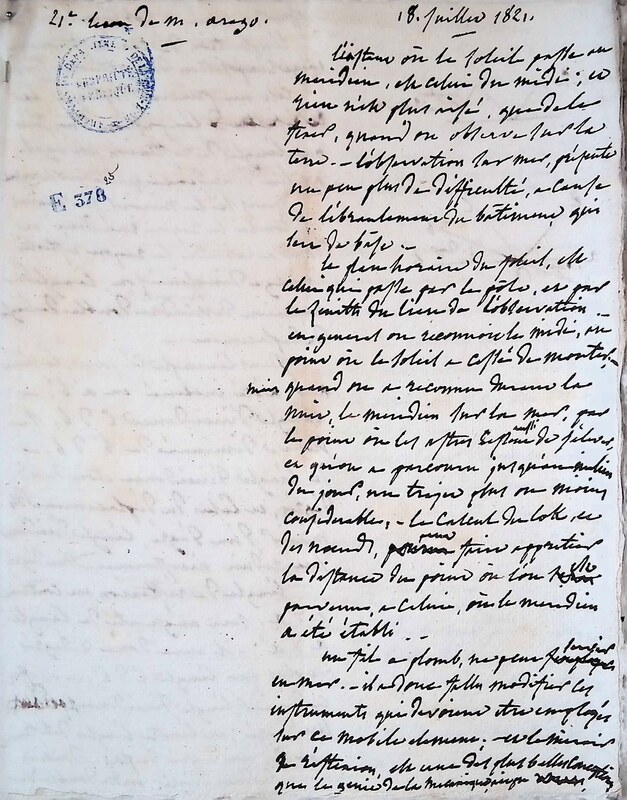 21.e leçon de m. arago. 18. juillet 1821.
E 378
l'instant où le soleil passe au
meridien, est celui du midi; et
rien n'est plus aisé, que de le
fixer, quand on observe sur la
terre. - l'observation sur mer, présente
un peu plus de difficulté, a cause
de l'ébranlement du bâtiment qui
sert de base. -
le plan horaire du soleil, est
celui qui passe par le pôle, et par
le zénith du lieu de l'observation
en general on reconnoit le midi, au
point où le soleil a cessé de monter. -
mais quand on a reconnu dans la
nuit, le meridien sur la mer, par
le point où les astres de s'élever
on a parcouru jusqu'au milieu
du jour, un trajet plus ou moins
considerable, - le calcul du lok, et
des noeuds, faire apprécier
la distance du point où l'on
parvenu, a celui, où le meridien
a été établi. -
un fil a plomb, ne peut
en mer. - il a donc fallu modifier les
instruments qui devoient etre employés
sur ce mobile element; - et le miroir
de réflexion, est une des plus belles
que le genie de la